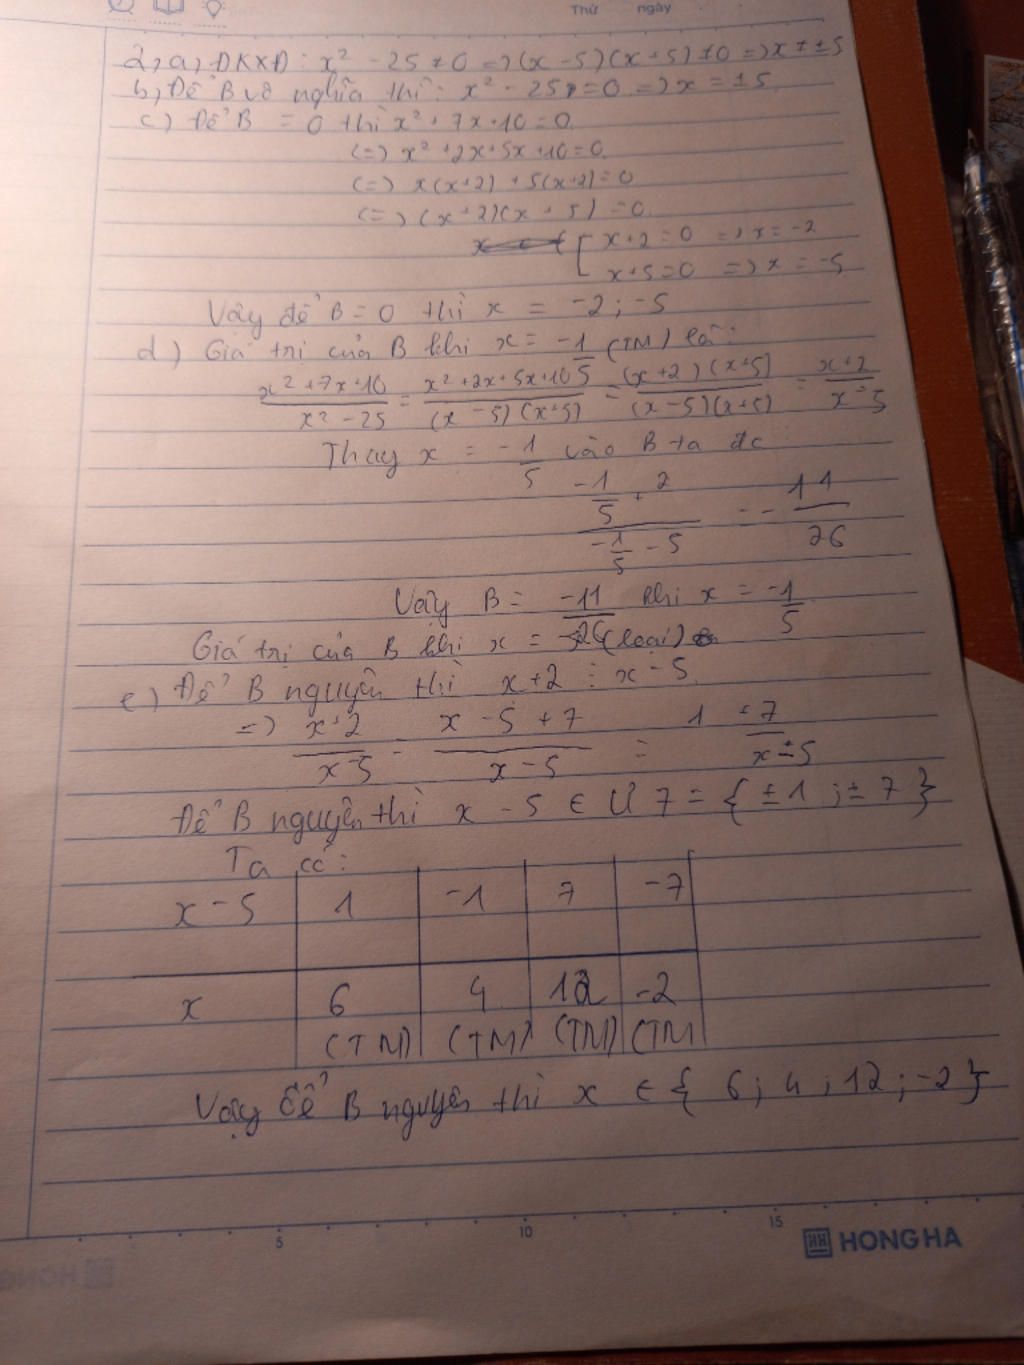 Thứ ngày
2, a, ĐKXĐ: x² - 25 ≠ 0 => (x - 5)(x + 5) ≠ 0 => x ≠ ± 5
b, Để B vô nghĩa thì: x² - 25 = 0 => x = ± 5
c) Để B = 0 thì x² + 7x + 10 = 0
<=> x² + 2x + 5x + 10 = 0
<=> x(x+2) + 5(x+2) = 0
<=> (x + 2)(x + 5) = 0
[ x + 2 = 0 => x = -2
x + 5 = 0 => x = -5
Vậy để B = 0 thì x = -2 ; -5
d) Giá trị của B khi x = -1/5 (TM) là:
(x² + 7x + 10)/(x² - 25) = (x² + 2x + 5x + 10)/((x - 5)(x + 5)) = ((x + 2)(x + 5))/((x - 5)(x + 5)) = (x + 2)/(x - 5)
Thay x = -1/5 vào B ta đc
(-1/5 + 2)/(-1/5 - 5) = - 11/26
Vậy B = -11/26 khi x = -1/5
Giá trị của B khi x = -5 (loại)
e) Để B nguyên thì x + 2 ⋮ x - 5
=> (x + 2)/(x - 5) = (x - 5 + 7)/(x - 5) = 1 + 7/(x - 5)
Để B nguyên thì x - 5 ∈ Ư 7 = { ± 1 ; ± 7 }
Ta có:
x - 5 1 -1 7 -7
x 6 4 12 -2
(TM) (TM) (TM) (TM
Vậy để B nguyên thì x ∈ { 6 ; 4 ; 12 ; -2 }
5 10 15
HONG HA